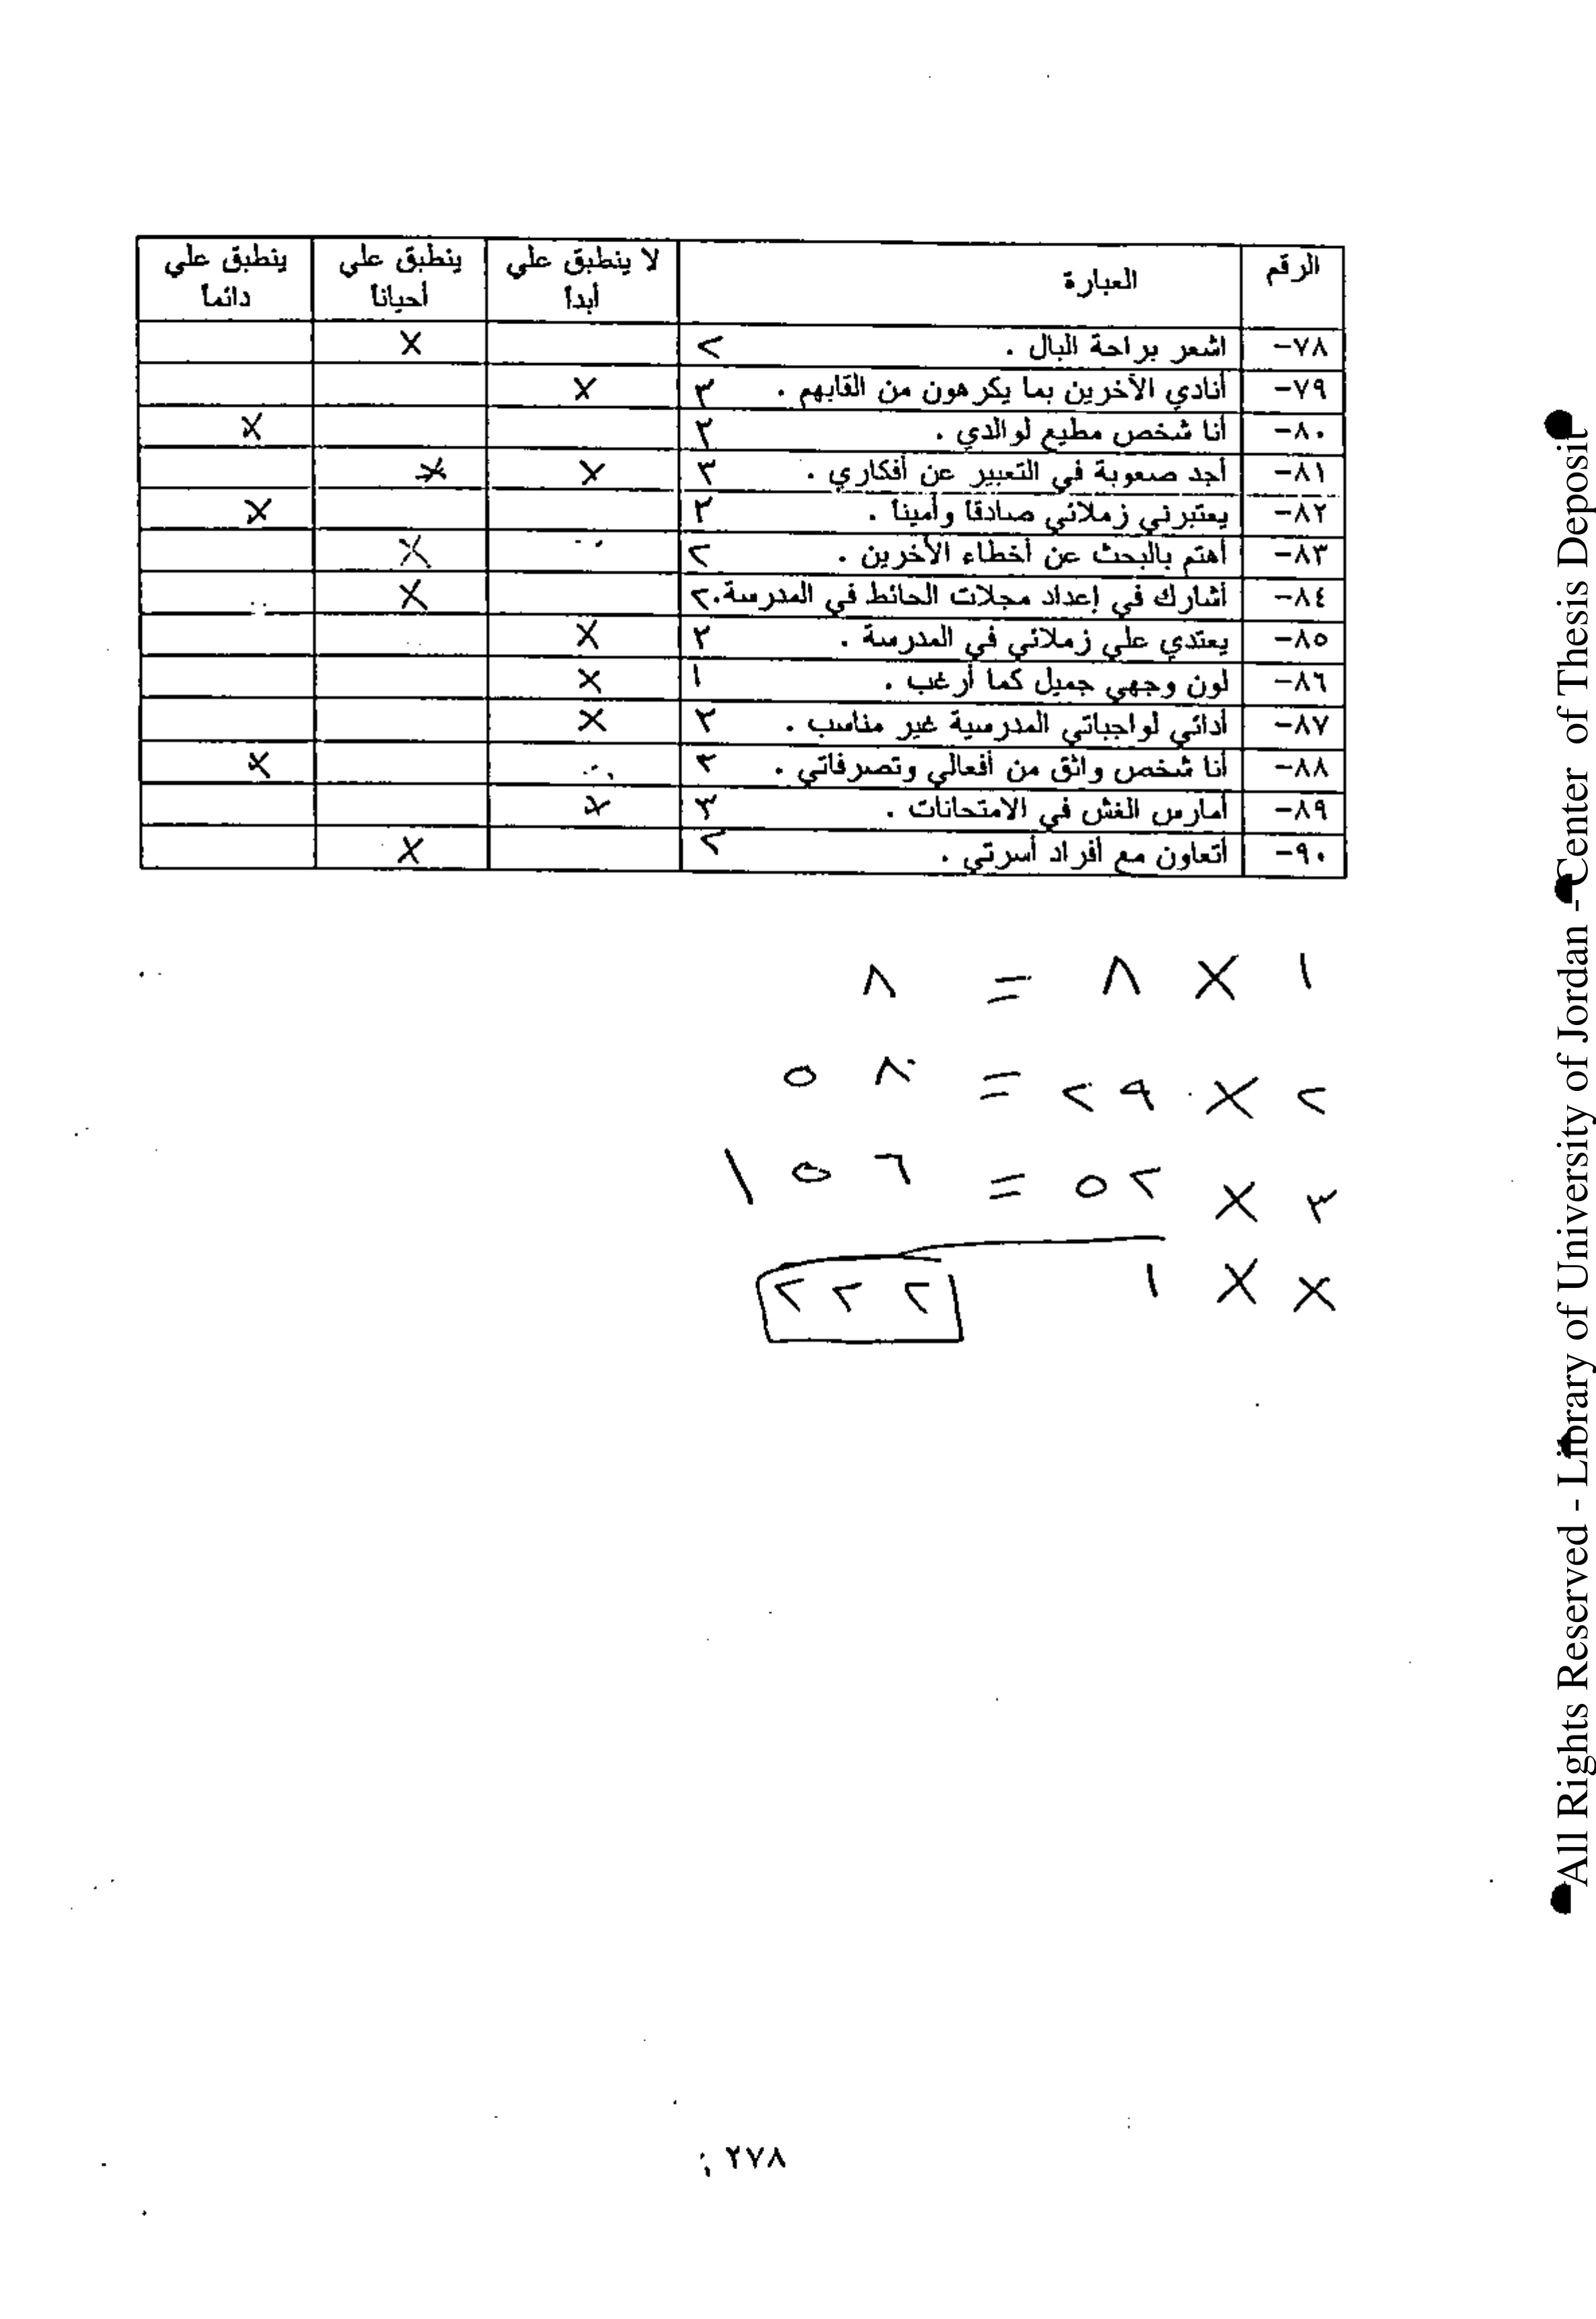 الرقم العبارة لا ينطبق علي أبدا ينطبق علي أحيانا ينطبق علي دائما
٧٨- اشعر براحة البال . ٢ X
٧٩- أنادي الآخرين بما يكرهون من القابهم . ٣ X
٨٠- أنا شخص مطيع لوالدي . ٣ X
٨١- أجد صعوبة في التعبير عن أفكاري . ٣ X X
٨٢- يعتبرني زملائي صادقا وأمينا . ٣ X
٨٣- أهتم بالبحث عن أخطاء الآخرين . ٢ X
٨٤- أشارك في إعداد مجلات الحائط في المدرسة. ٢ X
٨٥- يعتدي علي زملائي في المدرسة . ٣ X
٨٦- لون وجهي جميل كما أرغب . ١ X
٨٧- أدائي لواجباتي المدرسية غير مناسب . ٣ X
٨٨- أنا شخص واثق من أفعالي وتصرفاتي . ٣ X
٨٩- أمارس الغش في الامتحانات . ٣ X
٩٠- أتعاون مع أفراد أسرتي . ٢ X
١ X ٨ = ٨
٢ X ٢٩ = ٥٨
٣ X ٥٢ = ١٥٦
X X ١ ٢٢٢
٢٧٨
All Rights Reserved - Library of University of Jordan - Center of Thesis Deposit